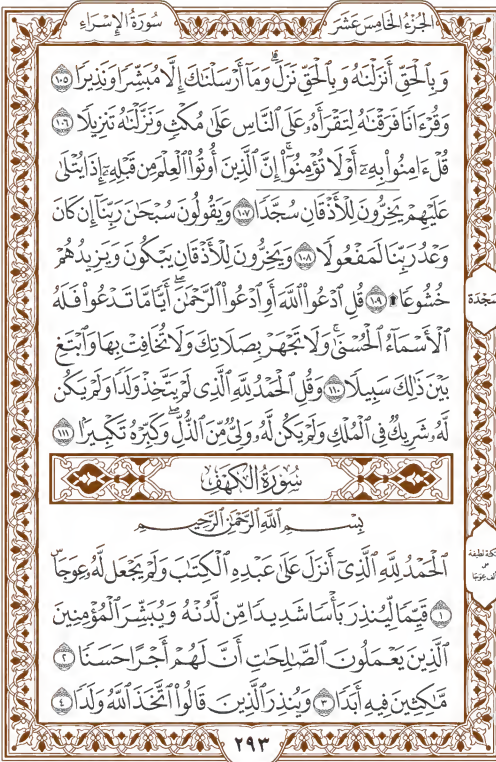 الجزء الخامس عشر
سورة الإسراء
وَبِٱلْحَقِّ أَنزَلْنَٰهُ وَبِٱلْحَقِّ نَزَلَ ۗ وَمَآ أَرْسَلْنَٰكَ إِلَّا مُبَشِّرًا وَنَذِيرًا ١٠٥
وَقُرْءَانًا فَرَقْنَٰهُ لِتَقْرَأَهُۥ عَلَى ٱلنَّاسِ عَلَىٰ مُكْثٍ وَنَزَّلْنَٰهُ تَنزِيلًا ١٠٦
قُلْ ءَامِنُوا۟ بِهِۦٓ أَوْ لَا تُؤْمِنُوٓا۟ ۚ إِنَّ ٱلَّذِينَ أُوتُوا۟ ٱلْعِلْمَ مِن قَبْلِهِۦٓ إِذَا يُتْلَىٰ
عَلَيْهِمْ يَخِرُّونَ لِلْأَذْقَانِ سُجَّدًا ١٠٧ وَيَقُولُونَ سُبْحَٰنَ رَبِّنَآ إِن كَانَ
وَعْدُ رَبِّنَا لَمَفْعُولًا ١٠٨ وَيَخِرُّونَ لِلْأَذْقَانِ يَبْكُونَ وَيَزِيدُهُمْ
خُشُوعًا ۩ ١٠٩ قُلِ ٱدْعُوا۟ ٱللَّهَ أَوِ ٱدْعُوا۟ ٱلرَّحْمَٰنَ ۖ أَيًّا مَّا تَدْعُوا۟ فَلَهُ
ٱلْأَسْمَآءُ ٱلْحُسْنَىٰ ۚ وَلَا تَجْهَرْ بِصَلَاتِكَ وَلَا تُخَافِتْ بِهَا وَٱبْتَغِ
بَيْنَ ذَٰلِكَ سَبِيلًا ١١٠ وَقُلِ ٱلْحَمْدُ لِلَّهِ ٱلَّذِى لَمْ يَتَّخِذْ وَلَدًا وَلَمْ يَكُن
لَّهُۥ شَرِيكٌ فِى ٱلْمُلْكِ وَلَمْ يَكُن لَّهُۥ وَلِىٌّ مِّنَ ٱلذُّلِّ ۖ وَكَبِّرْهُ تَكْبِيرًۢا ١١١
سُورَةُ الكَهْفِ
بِسْمِ ٱللَّهِ ٱلرَّحْمَٰنِ ٱلرَّحِيمِ
ٱلْحَمْدُ لِلَّهِ ٱلَّذِىٓ أَنزَلَ عَلَىٰ عَبْدِهِ ٱلْكِتَٰبَ وَلَمْ يَجْعَل لَّهُۥ عِوَجَا ۜ
١ قَيِّمًا لِّيُنذِرَ بَأْسًا شَدِيدًا مِّن لَّدُنْهُ وَيُبَشِّرَ ٱلْمُؤْمِنِينَ
ٱلَّذِينَ يَعْمَلُونَ ٱلصَّٰلِحَٰتِ أَنَّ لَهُمْ أَجْرًا حَسَنًا ٢
مَّٰكِثِينَ فِيهِ أَبَدًا ٣ وَيُنذِرَ ٱلَّذِينَ قَالُوا۟ ٱتَّخَذَ ٱللَّهُ وَلَدًا ٤
سَجْدَة
٢٩٣